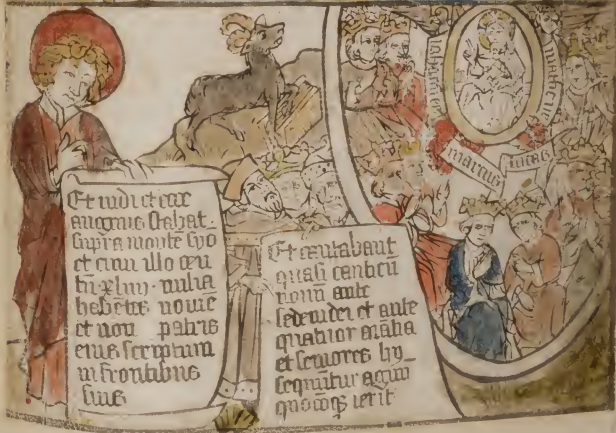 Et vidi et ecce
augnus stabat
supra monte syo
et cum illo cen
tu xl iiij milia
habetes nome
et nou patris
eius scriptum
in frontibus
suis
Et cantabant
quasi canticu
nouu ante
sedem dei et ante
quatuor aialia
et seniores hy
sequutur agnu
quocoqz ierit
matheus
marcus
lucas